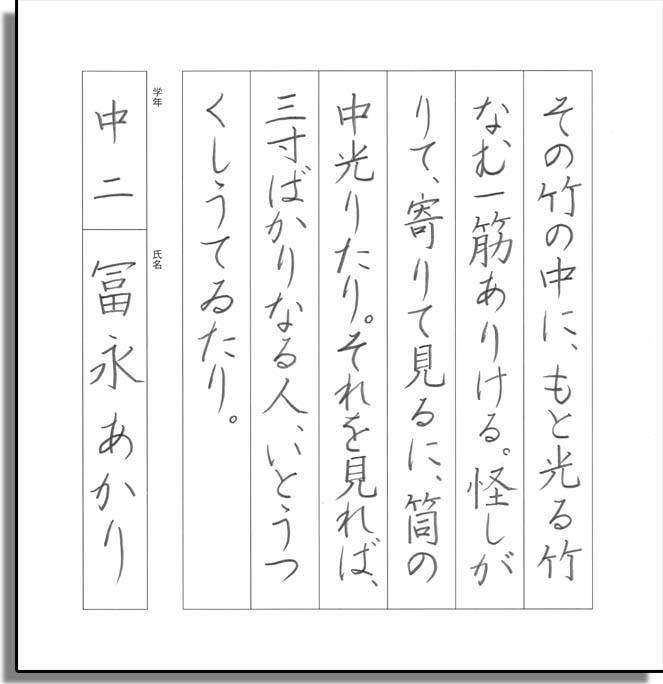 その竹の中に、もと光る竹
なむ一筋ありける。怪しが
りて、寄りて見るに、筒の
中光りたり。それを見れば、
三寸ばかりなる人、いとうつ
くしうてゐたり。
学年
中二
氏名
冨永あかり